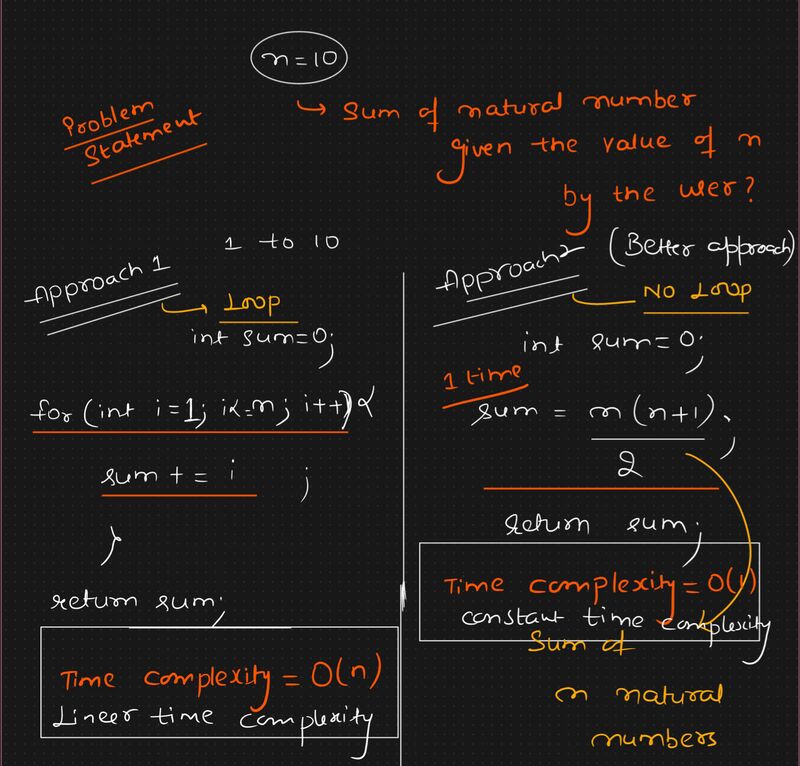 n=10
Problem
Statement
↳ Sum of natural number
given the value of n
by the user?
1 to 10
Approach 1
→ Loop
int sum=0;
for (int i=1; i<=n; i++) {
sum += i ;
}
return sum;
Time complexity = O(n)
Lineer time complexity
Approach 2 (Better approach)
NO Loop
int sum=0;
1 time
sum = n(n+1) ;
2
return sum;
Time complexity = O(1)
constant time complexity
Sum of
n natural
numbers